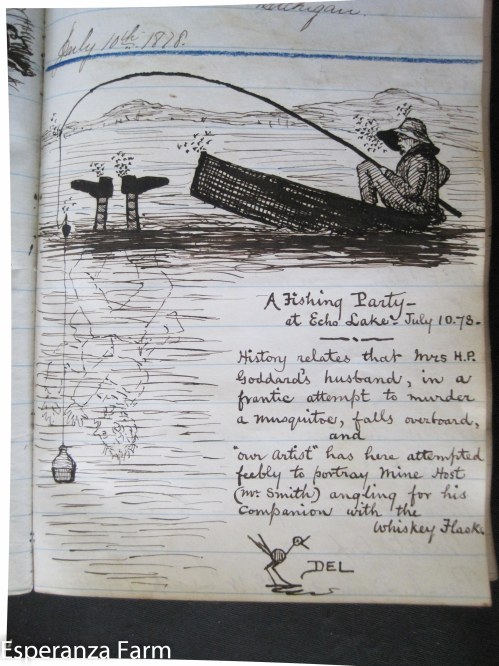 Michigan.
July 10th 1878.
A Fishing Party –
at Echo Lake – July 10.78 –
History relates that Mrs H.P.
Goddard's husband, in a
frantic attempt to murder
a musquitoe, falls overboard,
and
"our Artist" has here attempted
feebly to portray Mine Host
(Mr Smith) angling for his
Companion with the
Whiskey Flask.
DEL
Esperanza Farm